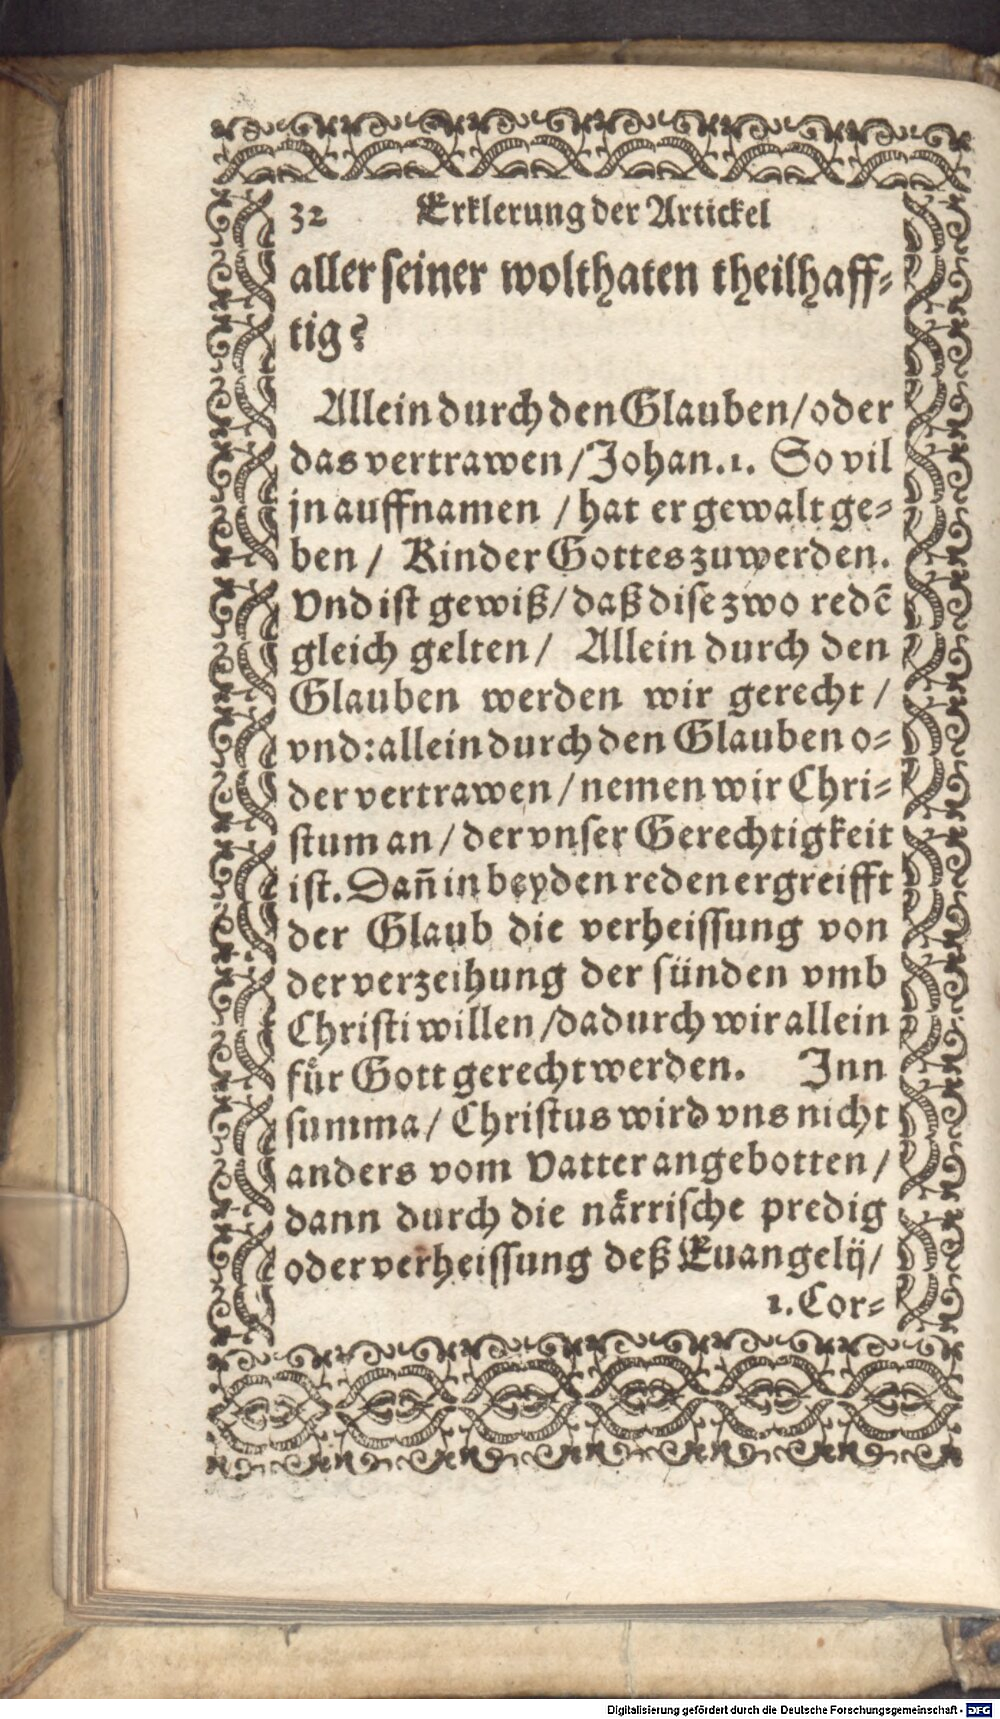 32 Erklerung der Artickel
aller seiner wolthaten theilhaff⸗
tig?
Allein durch den Glauben/ oder
das vertrawen/ Johan.1. So vil
jn auffnamen / hat er gewalt ge⸗
ben / Kinder Gottes zu werden.
Vnd ist gewiß/ daß dise zwo redẽ
gleich gelten / Allein durch den
Glauben werden wir gerecht /
vnd: allein durch den Glauben o⸗
der vertrawen / nemen wir Chri⸗
stum an / der vnser Gerechtigkeit
ist. Dañ in beyden reden ergreifft
der Glaub die verheissung von
der verzeihung der sünden vmb
Christi willen /dadurch wir allein
fuͤr Gott gerecht werden. Inn
summa / Christus wird vns nicht
anders vom Vatter angebotten /
dann durch die naͤrrische predig
oder verheissung deß Euangelij /
1. Cor⸗
Digitalisierung gefördert durch die Deutsche Forschungsgemeinschaft - DFG